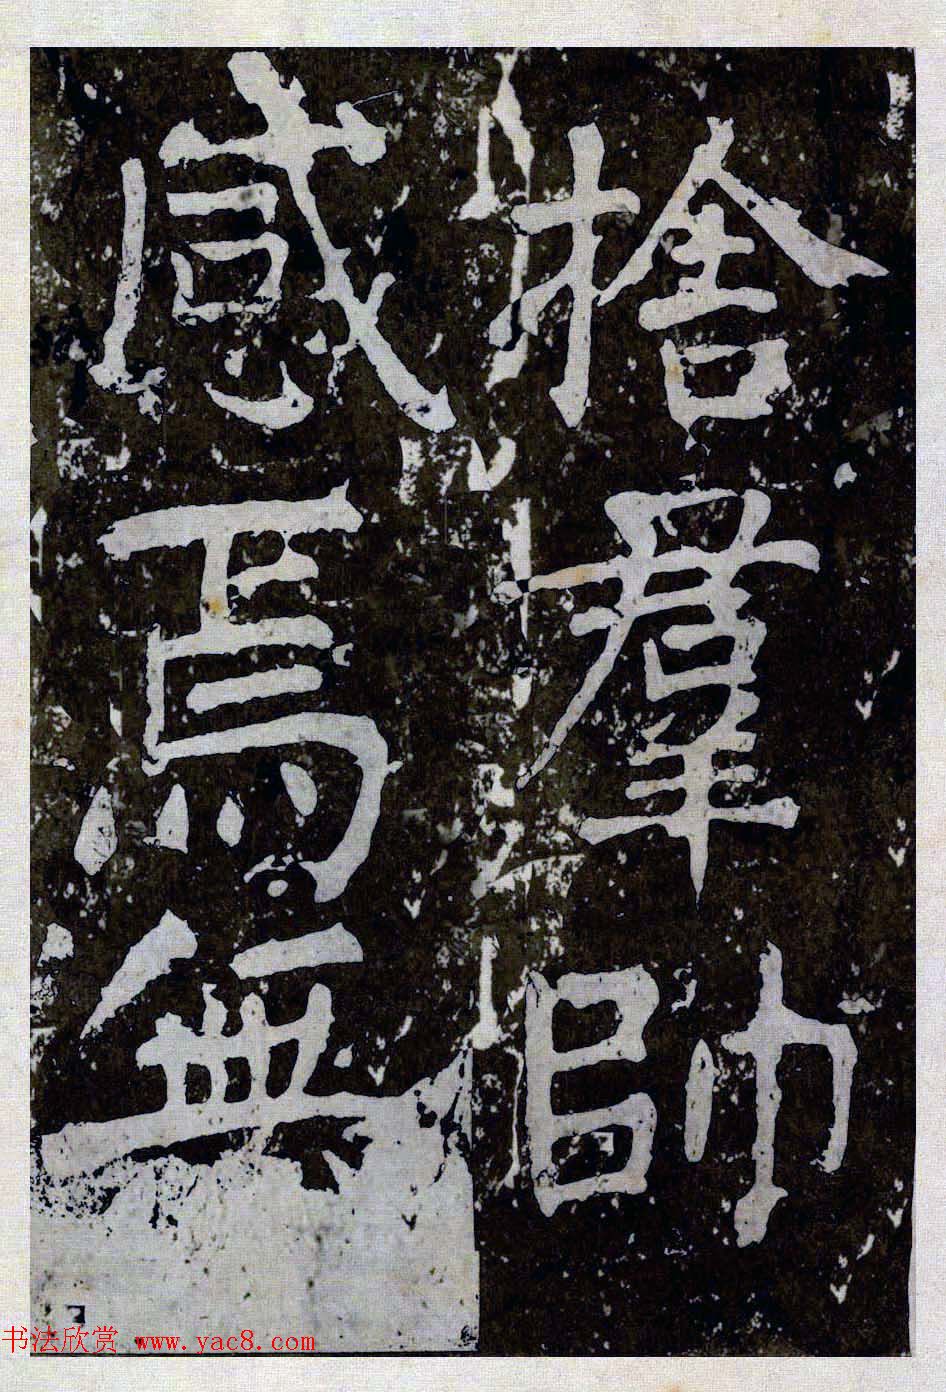 捨羣帥
感焉無
书法欣赏 www.yac8.com